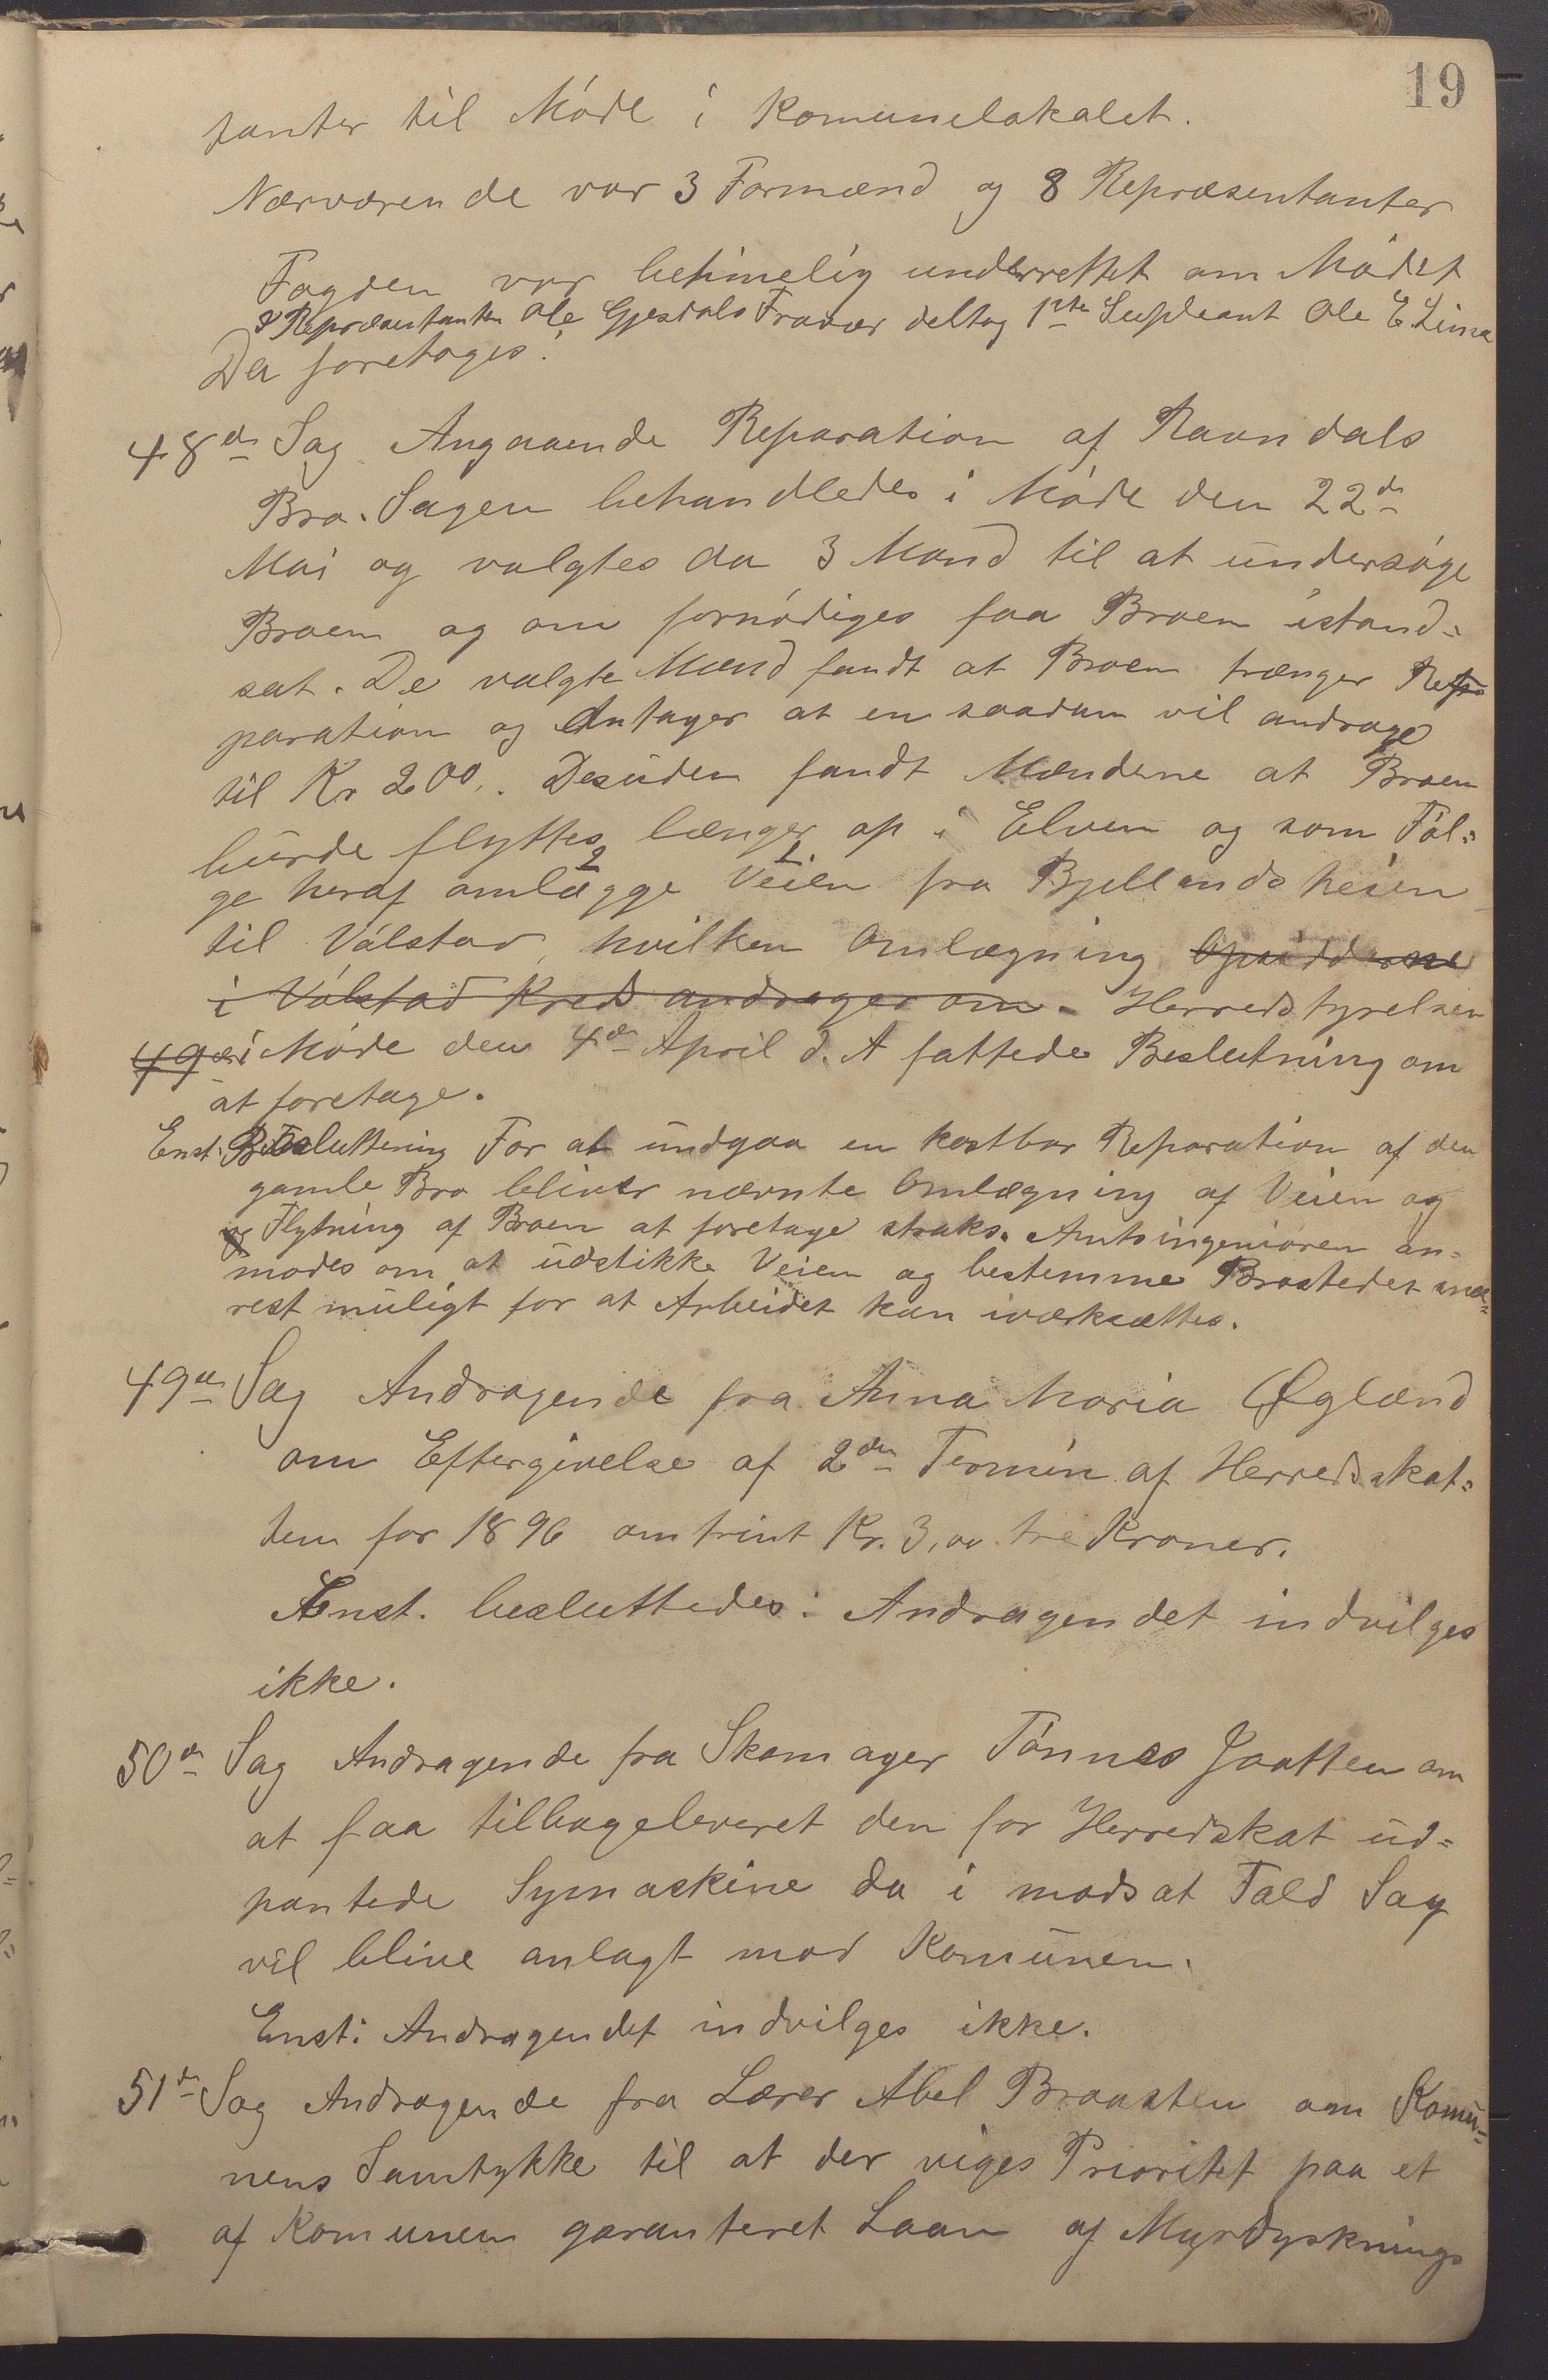 19
tanter til Móde i Komunelokalet.
Nærværende var 3 Formænd og 8 Repræsentanter
Fogden var betimelig underrettet om Módet
I Repræsentanten Ole Gjesdals Fravær deltog 1ste Supleant Ole E Lima
Da foretoges:
48de Sag Angaaende Reparation af Ravndals
Bro. Sagen behandledes i Móde den 22de
Mai og valgtes da 3 Mand til at undersóge
Broen og om fornódiges faa Broen istand-
sat. De valgte Mænd fandt at Broen trænger Re-
paration og Antager at en saadan vil andrage
til Kr 200,. Desuden fandt Mændene at Broen
burde flyttes længer op i Elven og som Fól-
ge heraf omlægge 2 Veien 1 fra Bjellandsheien
til Válstad, hvilken Omlægning Opsidderne
i Válstad Kreds andrager om. Herredstyrelsen
49de i Móde den 4de April d. A fattede Beslutning om
at foretage.
Enst. Besluttning For at undgaa en kostbar Reparation af den
gamle Bro bliver nævnte Omlægning af Veien og
og Flytning af Broen at foretage straks. Amtsingeniøren an-
modes om at udstikke Veien og bestemme Brostedet sna-
rest muligt for at Arbeidet kan iværksættes.
49de Sag Andragende fra Anna Maria Øglænd
om Eftergivelse af 2den Termin af Herredsskat-
ten for 1896 omtrint Kr. 3,00 tre Kroner.
Enst. besluttedes: Andragendet indvilges
ikke.
50de Sag Andragende fra Skomager Tónnes Jaatten om
at faa tilbageleveret den for Herredskat ud-
pantede Symaskine da i modsat Fald Sag
vil blive anlagt mod Komunen.
Enst: Andragendet indvilges ikke.
51de Sag Andragende fra Lærer Abel Braasten om Komu-
nens Samtykke til at der viges Prioritet paa et
af Komunen garanteret Laan af Myrdyrknings